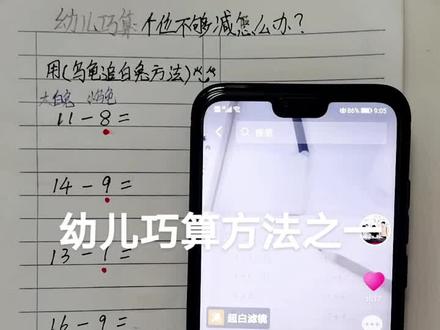 幼儿巧算 个位不够减怎么办?
用(乌龟追白兔方法)
大白兔 小乌龟
11-8=
14-9=
13-7=
16-9=
86%
9:05
搜索
超白滤镜
幼儿巧算方法之一